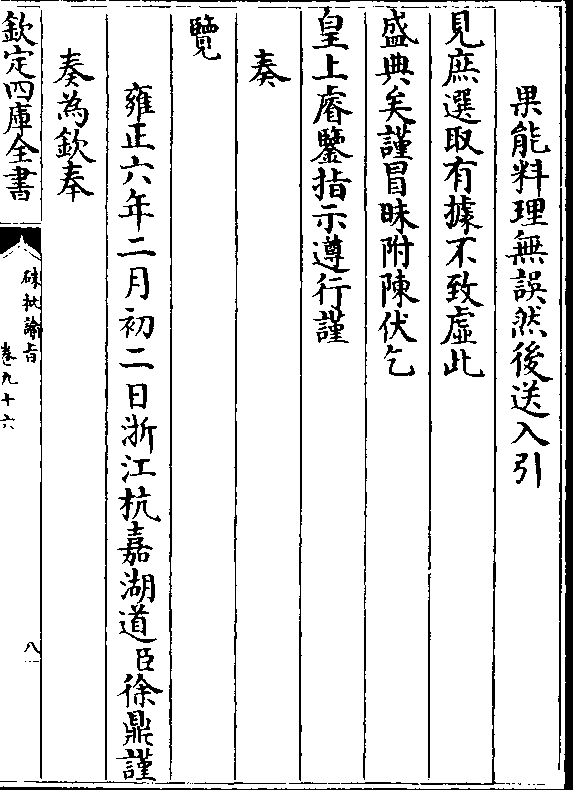 果能料理無誤然後送入引
見庶選取有據不致虛此
盛典矣謹冒昧附陳伏乞
皇上睿鑒指示遵行謹
奏
覽
雍正六年二月初二日浙江杭嘉湖道臣徐鼎謹
奏為欽奉
欽定四庫全書
硃批諭旨
卷九十六
八